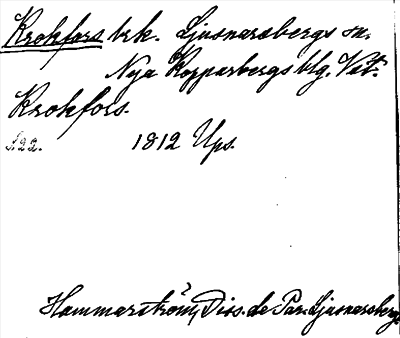 Krokfors brk. Ljusnarsbergs sn.
Nya Kopparbergs blg. Vstm.
Krokfors.
S. 22. 1812 Ups.
Hammarström, Diss. de Par. Ljusnarsberg